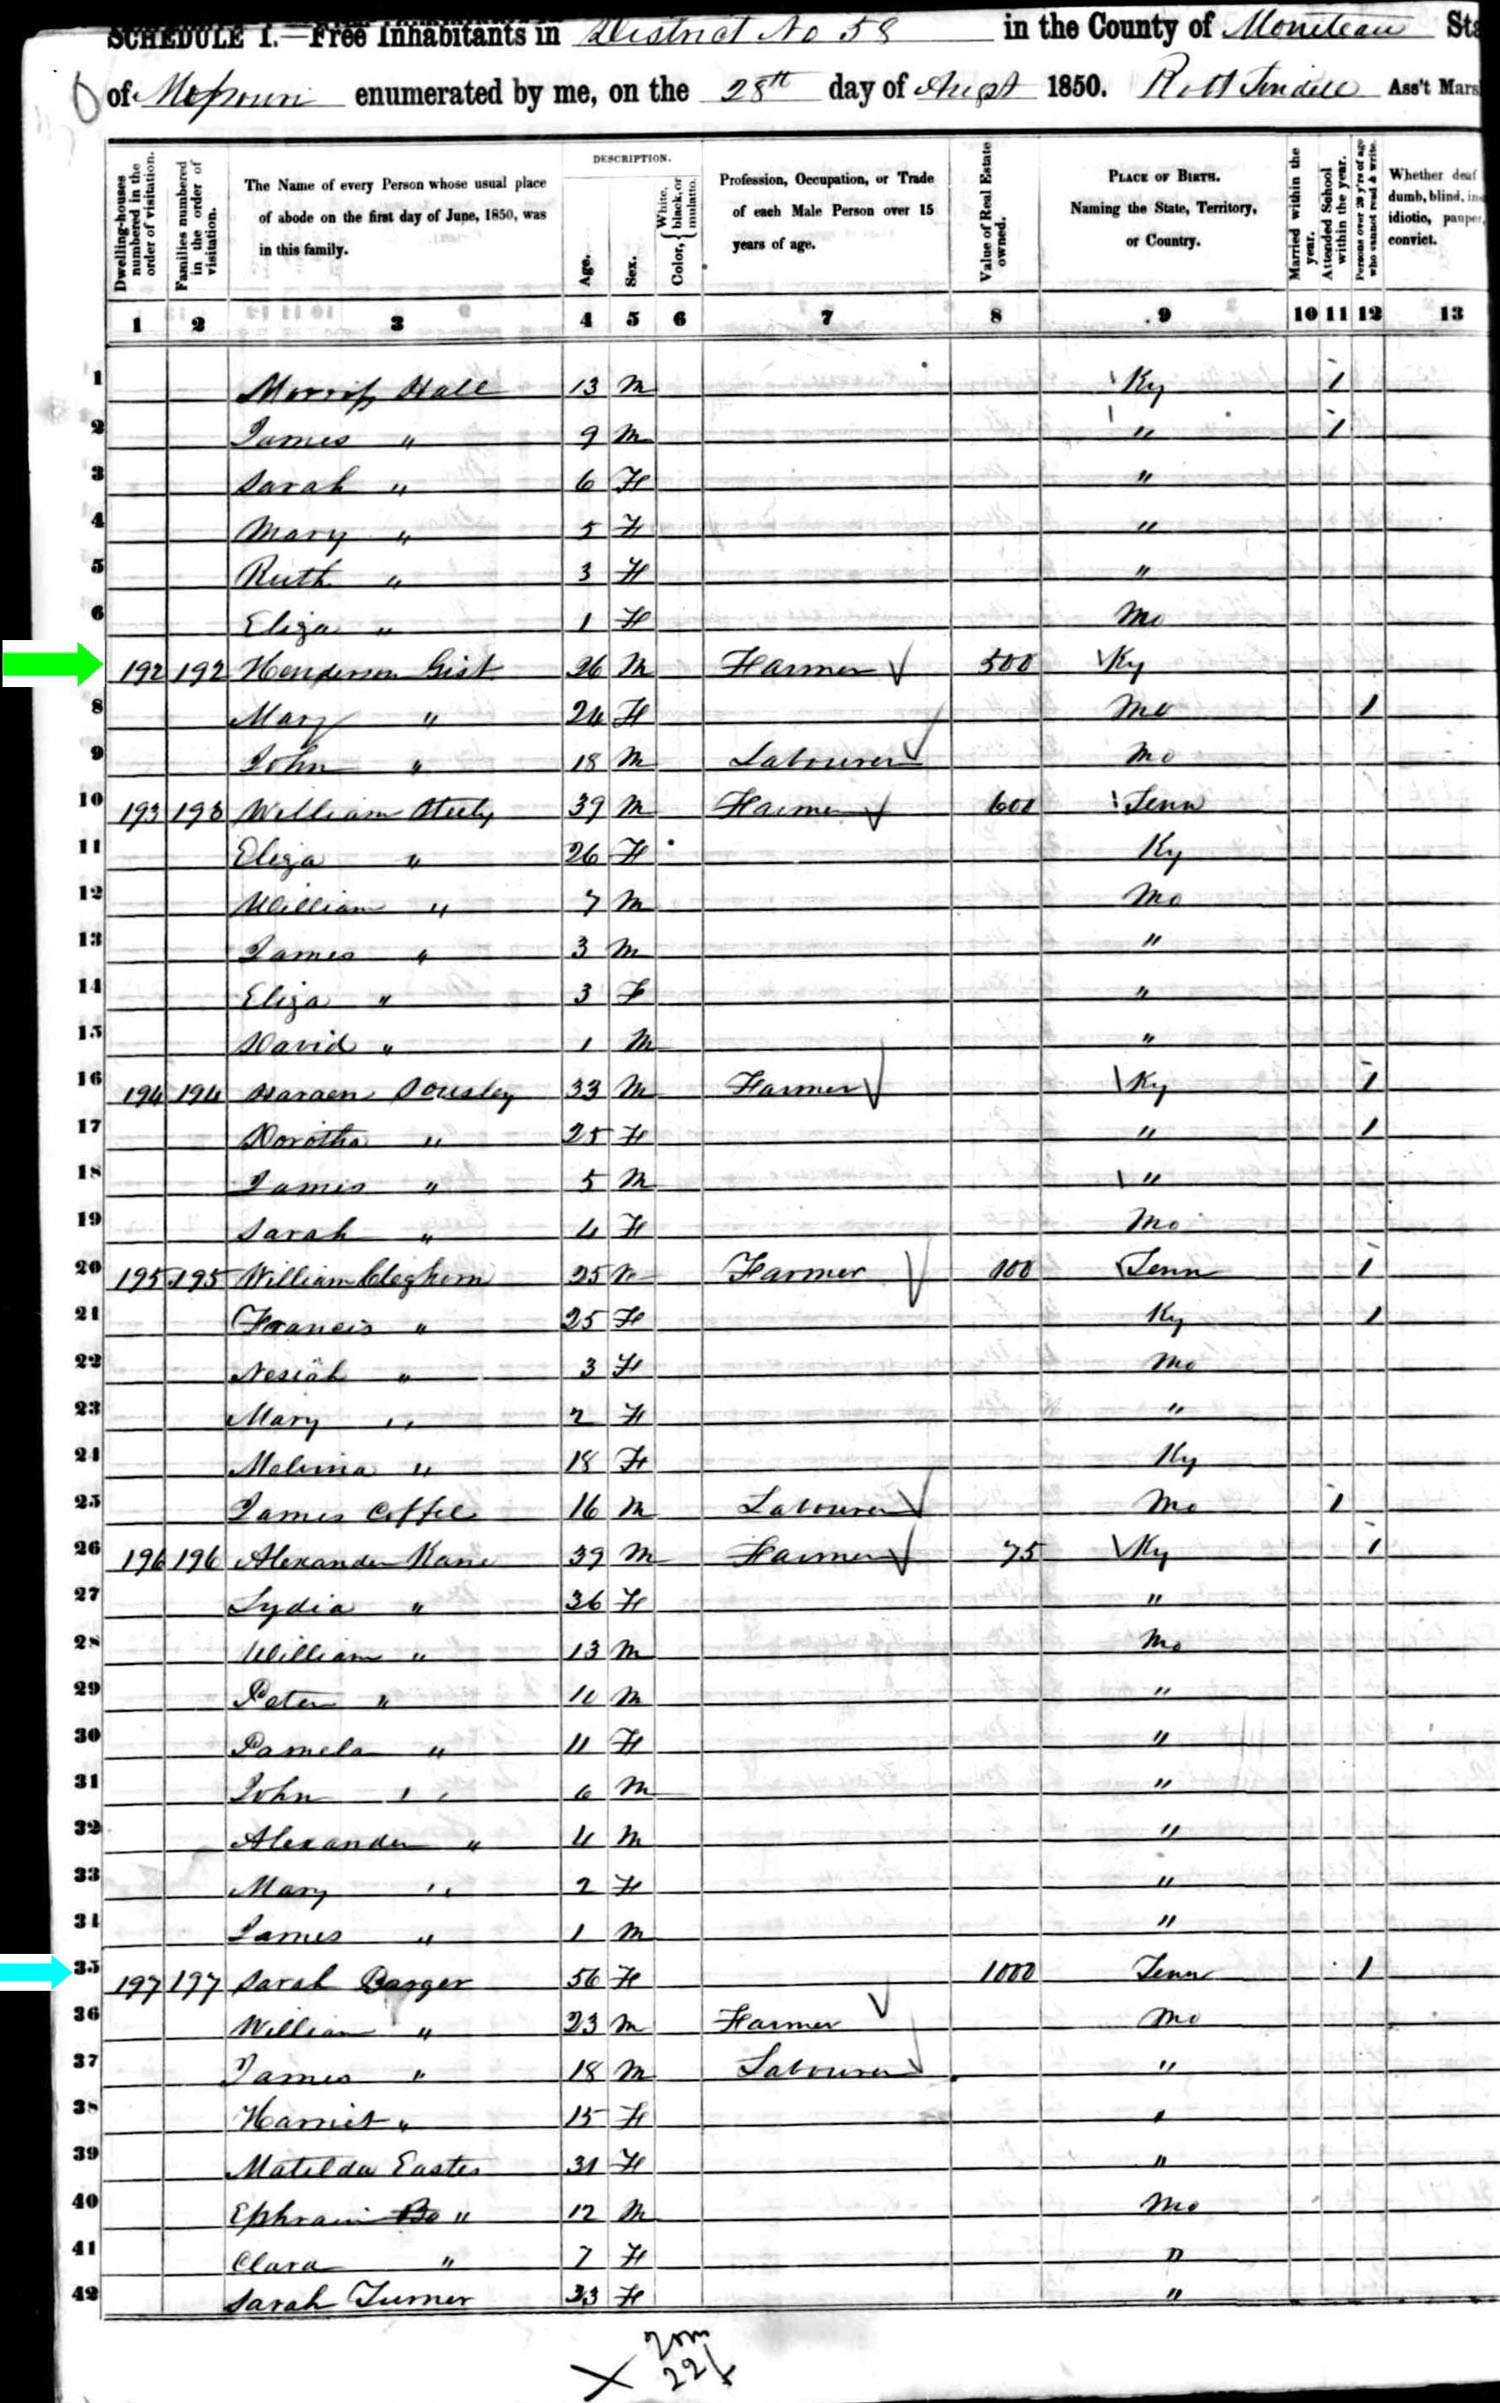 SCHEDULE I.—Free Inhabitants in District No 58 in the County of Moniteau Sta
of Missouri enumerated by me, on the 28th day of Augst 1850. Ass't Mars
Dwelling-houses numbered in the order of visitation.
Families numbered in the order of visitation.
The Name of every Person whose usual place of abode on the first day of June, 1850, was in this family.
DESCRIPTION.
Age.
Sex.
Color, { White, black, or mulatto.
Profession, Occupation, or Trade of each Male Person over 15 years of age.
Value of Real Estate owned.
PLACE OF BIRTH. Naming the State, Territory, or Country.
Married within the year.
Attended School within the year.
Persons over 20 y'rs of age who cannot read & write.
Whether deaf dumb, blind, idiotic, pauper, convict.
1 2 3 4 5 6 7 8 9 10 11 12 13
1 Morris Hall 13 M Ky 1
2 James " 9 M " 1
3 Sarah " 6 F "
4 Mary " 5 F "
5 Ruth " 3 F "
6 Eliza " 1 F Mo
192 192 Henderson Gist 26 M Farmer 500 Ky
8 Mary " 24 F Mo 1
9 John " 18 M Labourer Mo
10 193 193 William Steely 39 M Farmer 600 Tenn
11 Eliza " 26 F Ky
12 William " 7 M Mo
13 James " 3 M "
14 Eliza " 3 F "
15 David " 1 M "
16 194 194 Sousley 33 M Farmer Ky 1
17 Dorotha " 25 F " 1
18 James " 5 M "
19 Sarah " 4 F Mo
20 195 195 William Cleghorn 25 M Farmer 100 Tenn 1
21 Francis " 25 F Ky 1
22 Nesiah " 3 F Mo
23 Mary " 2 F "
24 Melvina " 18 F Ky
25 James Coffee 16 M Labourer Mo 1
26 196 196 Alexander Kane 39 M Farmer 75 Ky 1
27 Lydia " 36 F "
28 William " 13 M Mo
29 Peter " 10 M "
30 Pamela " 11 F "
31 John " 6 M "
32 Alexander " 4 M "
33 Mary " 2 F "
34 James " 1 M "
35 197 197 Sarah Barger 56 F 1000 Tenn 1
36 William " 23 M Farmer Mo
37 James " 18 M Labourer "
38 Harriet " 15 F "
39 Matilda Easter 31 F "
40 Ephraim Bo " 12 M Mo
41 Clara " 7 F "
42 Sarah Turner 33 F "